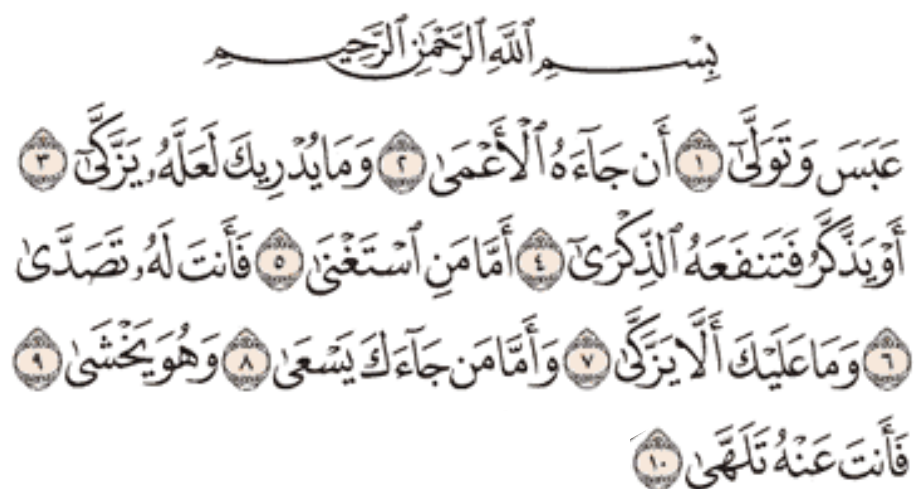 بِسْمِ ٱللَّهِ ٱلرَّحْمَٰنِ ٱلرَّحِيمِ
عَبَسَ وَتَوَلَّىٰٓ ١ أَن جَآءَهُ ٱلْأَعْمَىٰ ٢ وَمَا يُدْرِيكَ لَعَلَّهُۥ يَزَّكَّىٰٓ ٣
أَوْ يَذَّكَّرُ فَتَنفَعَهُ ٱلذِّكْرَىٰٓ ٤ أَمَّا مَنِ ٱسْتَغْنَىٰ ٥ فَأَنتَ لَهُۥ تَصَدَّىٰ
٦ وَمَا عَلَيْكَ أَلَّا يَزَّكَّىٰ ٧ وَأَمَّا مَن جَآءَكَ يَسْعَىٰ ٨ وَهُوَ يَخْشَىٰ ٩
فَأَنتَ عَنْهُ تَلَهَّىٰ ١٠